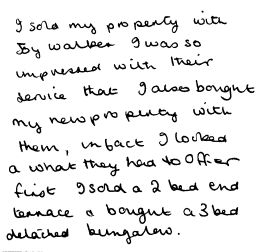 I sold my property with
Joy walker I was so
impressed with their
service that I also bought
my new property with
them, infact I looked
a what they had to offer
first I sold a 2 bed end
terrace & bought a 3 bed
detached bungalow.